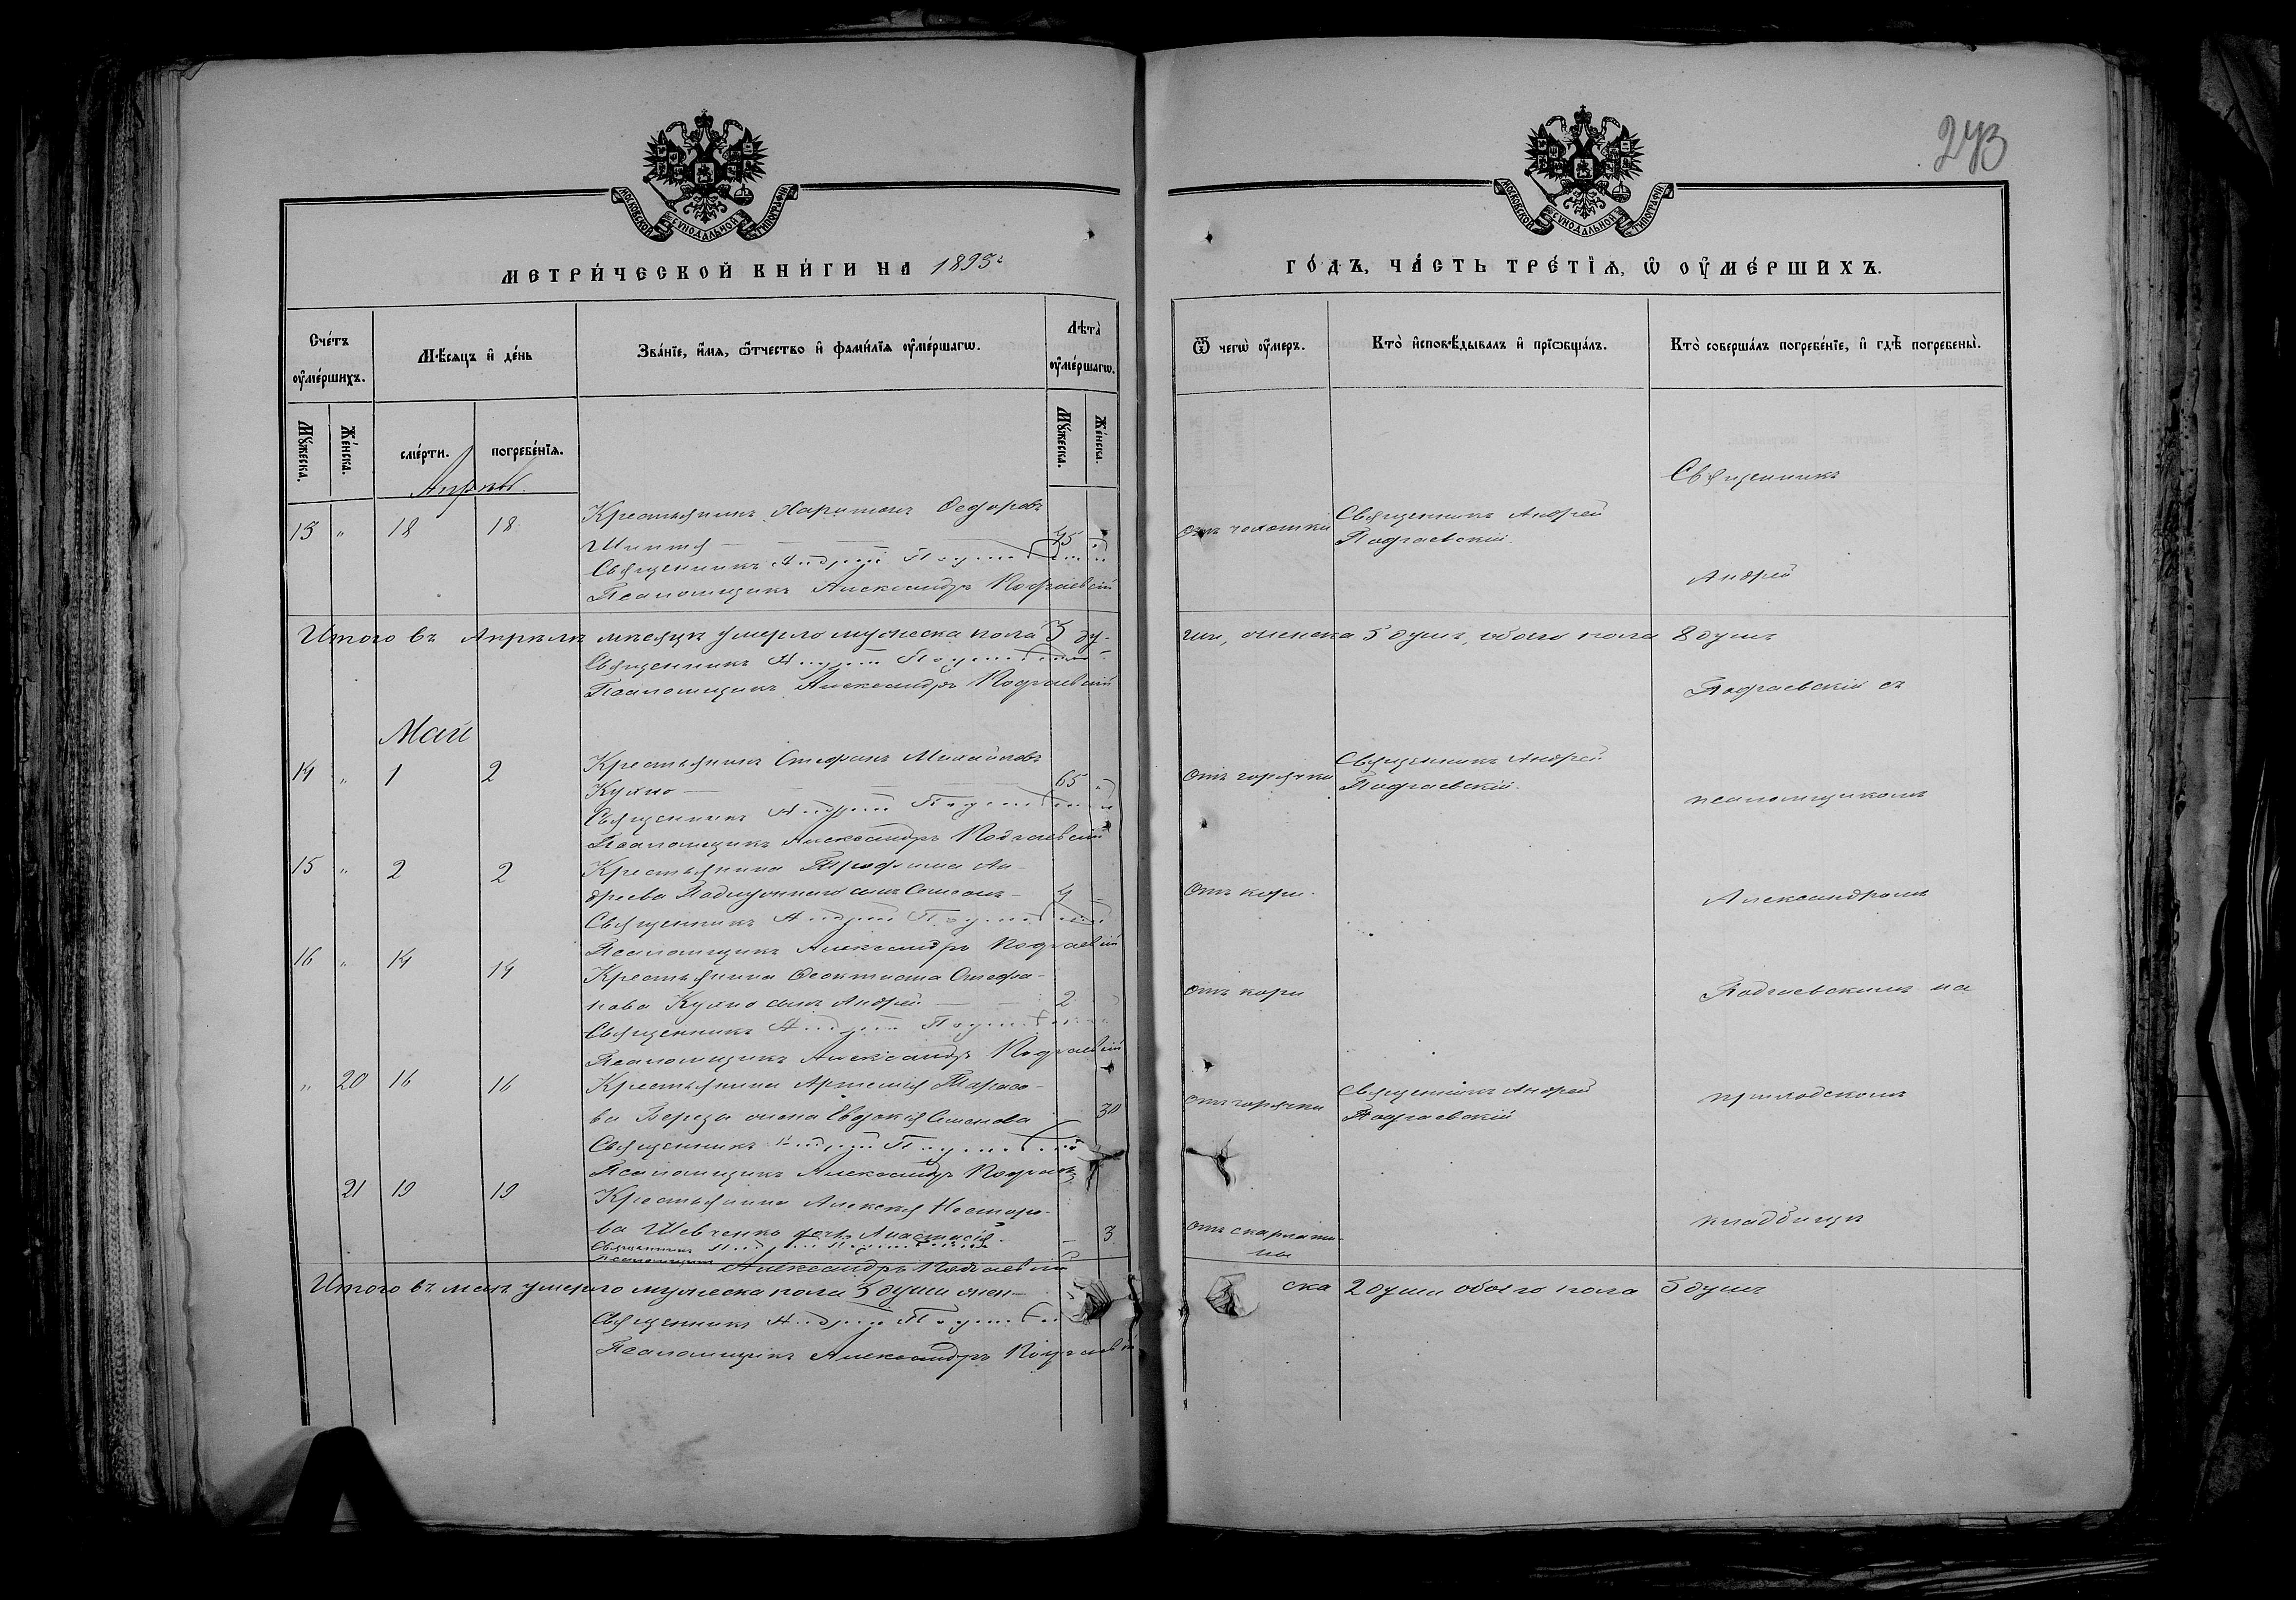 273
МОСКОВСКОЙ СѴНОДАЛЬНОЙ ТИПОГРАФІИ
МЕТРИ́ЧЕСКОЙ КНИ́ГИ НА 1893 г
Сче́тъ оу҆ме́ршихъ.
Мѣ́сяцъ и҆ де́нь
Зва́нїе, и҆́мя, ѻ҆́тчество и҆ фами́лїя оу҆ме́ршагѡ.
Лѣта̀ оу҆ме́ршагѡ.
Мꙋ́жеска. Же́нска. сме́рти. погребе́нїѧ. Мꙋ́жеска. Же́нска.
Апрѣль
13 " 18 18 Крестьянинъ Харитонъ Федоровъ
45
Священникъ Андрей Подгаевскій
Псаломщикъ Александръ Подгаевскій
Итого въ Апрѣлѣ мѣсяцѣ умерло мужеска пола 3 ду-
Священникъ Андрей Подгаевскій
Псаломщикъ Александръ Подгаевскій
Май
14 " 1 2 Крестьянинъ Стефанъ Михайловъ
Кухно 65 "
Священникъ Андрей Подгаевскій
Псаломщикъ Александръ Подгаевскій
15 " 2 2 Крестьянина Трофима Ан-
дреева сынъ Симеонъ 4
Священникъ Андрей Подгаевскій
Псаломщикъ Александръ Подгаевскій
16 " 14 14 Крестьянина Феоктиста Стефа-
нова Кухно сынъ Андрей 2
Священникъ Андрей Подгаевскій
Псаломщикъ Александръ Подгаевскій
" 20 16 16 Крестьянина Артемія Тарасо-
ва Береза жена Евдокія Семенова 30
Священникъ Андрей Подгаевскій
Псаломщикъ Александръ Подгаевскій
21 19 19 Крестьянина Алексѣя Несторо-
ва Шевченко дочь Анастасія. 3
Священникъ Андрей Подгаевскій
Псаломщикъ Александръ Подгаевскій
Итого въ маѣ умерло мужеска пола 3 души жен-
Священникъ Андрей Подгаевскій
Псаломщикъ Александръ Подгаевскій
МОСКОВСКОЙ СѴНОДАЛЬНОЙ ТИПОГРАФІИ
ГО́ДЪ, ЧА́СТЬ ТРЕ́ТЇѦ, Ѡ҆ ОУ҆МЕ́РШИХЪ.
Ѿ чегѡ̀ оу҆́меръ.
Кто̀ и҆сповѣ́дывалъ и҆ прїѡбща́лъ.
Кто̀ соверша́лъ погребе́нїе, и҆ гдѣ̀ погребены̀.
Священникъ
отъ чахотки Священникъ Андрей
Подгаевскій.
Андрей
ши, женска 5 душъ, обоего пола 8 душъ
Подгаевскій съ
отъ горячки Священникъ Андрей
Подгаевскій.
псаломщикомъ
отъ кори. Александромъ
отъ кори Подгаевскимъ на
отъ горячки Священникъ Андрей
Подгаевскій
приходскомъ
кладбищѣ
отъ скарлати-
ны
ска 2 души обоего пола 5 душъ